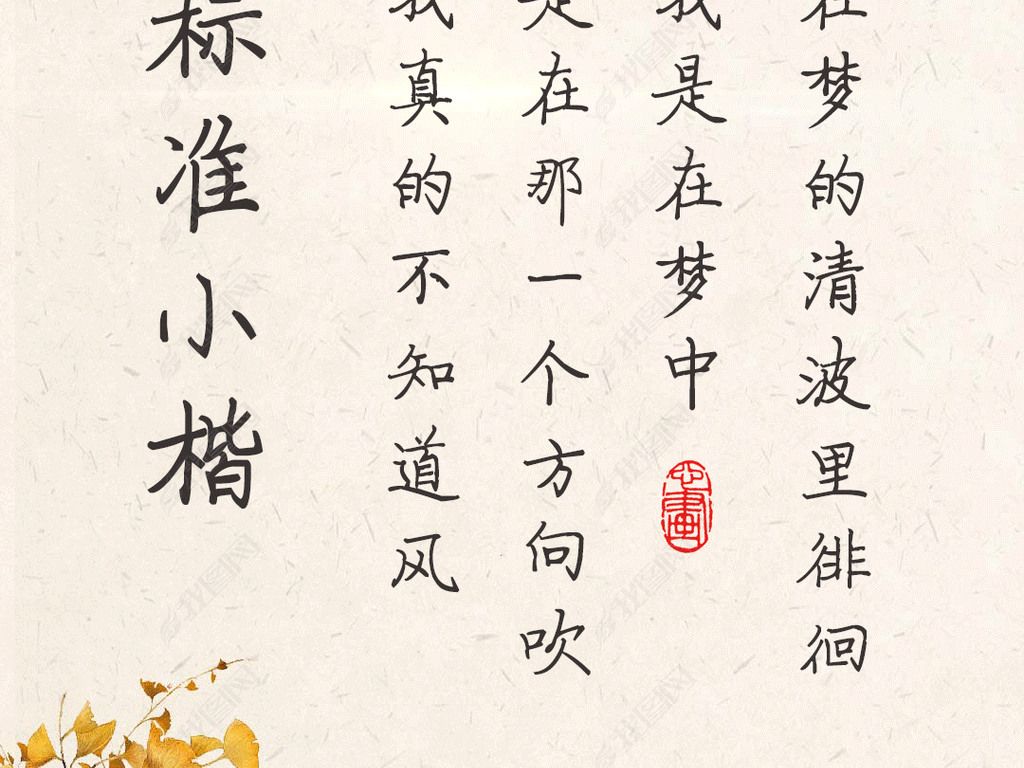 标准小楷
我真的不知道风
是在那一个方向吹
我是在梦中
在梦的清波里徘徊
心畫
找图网